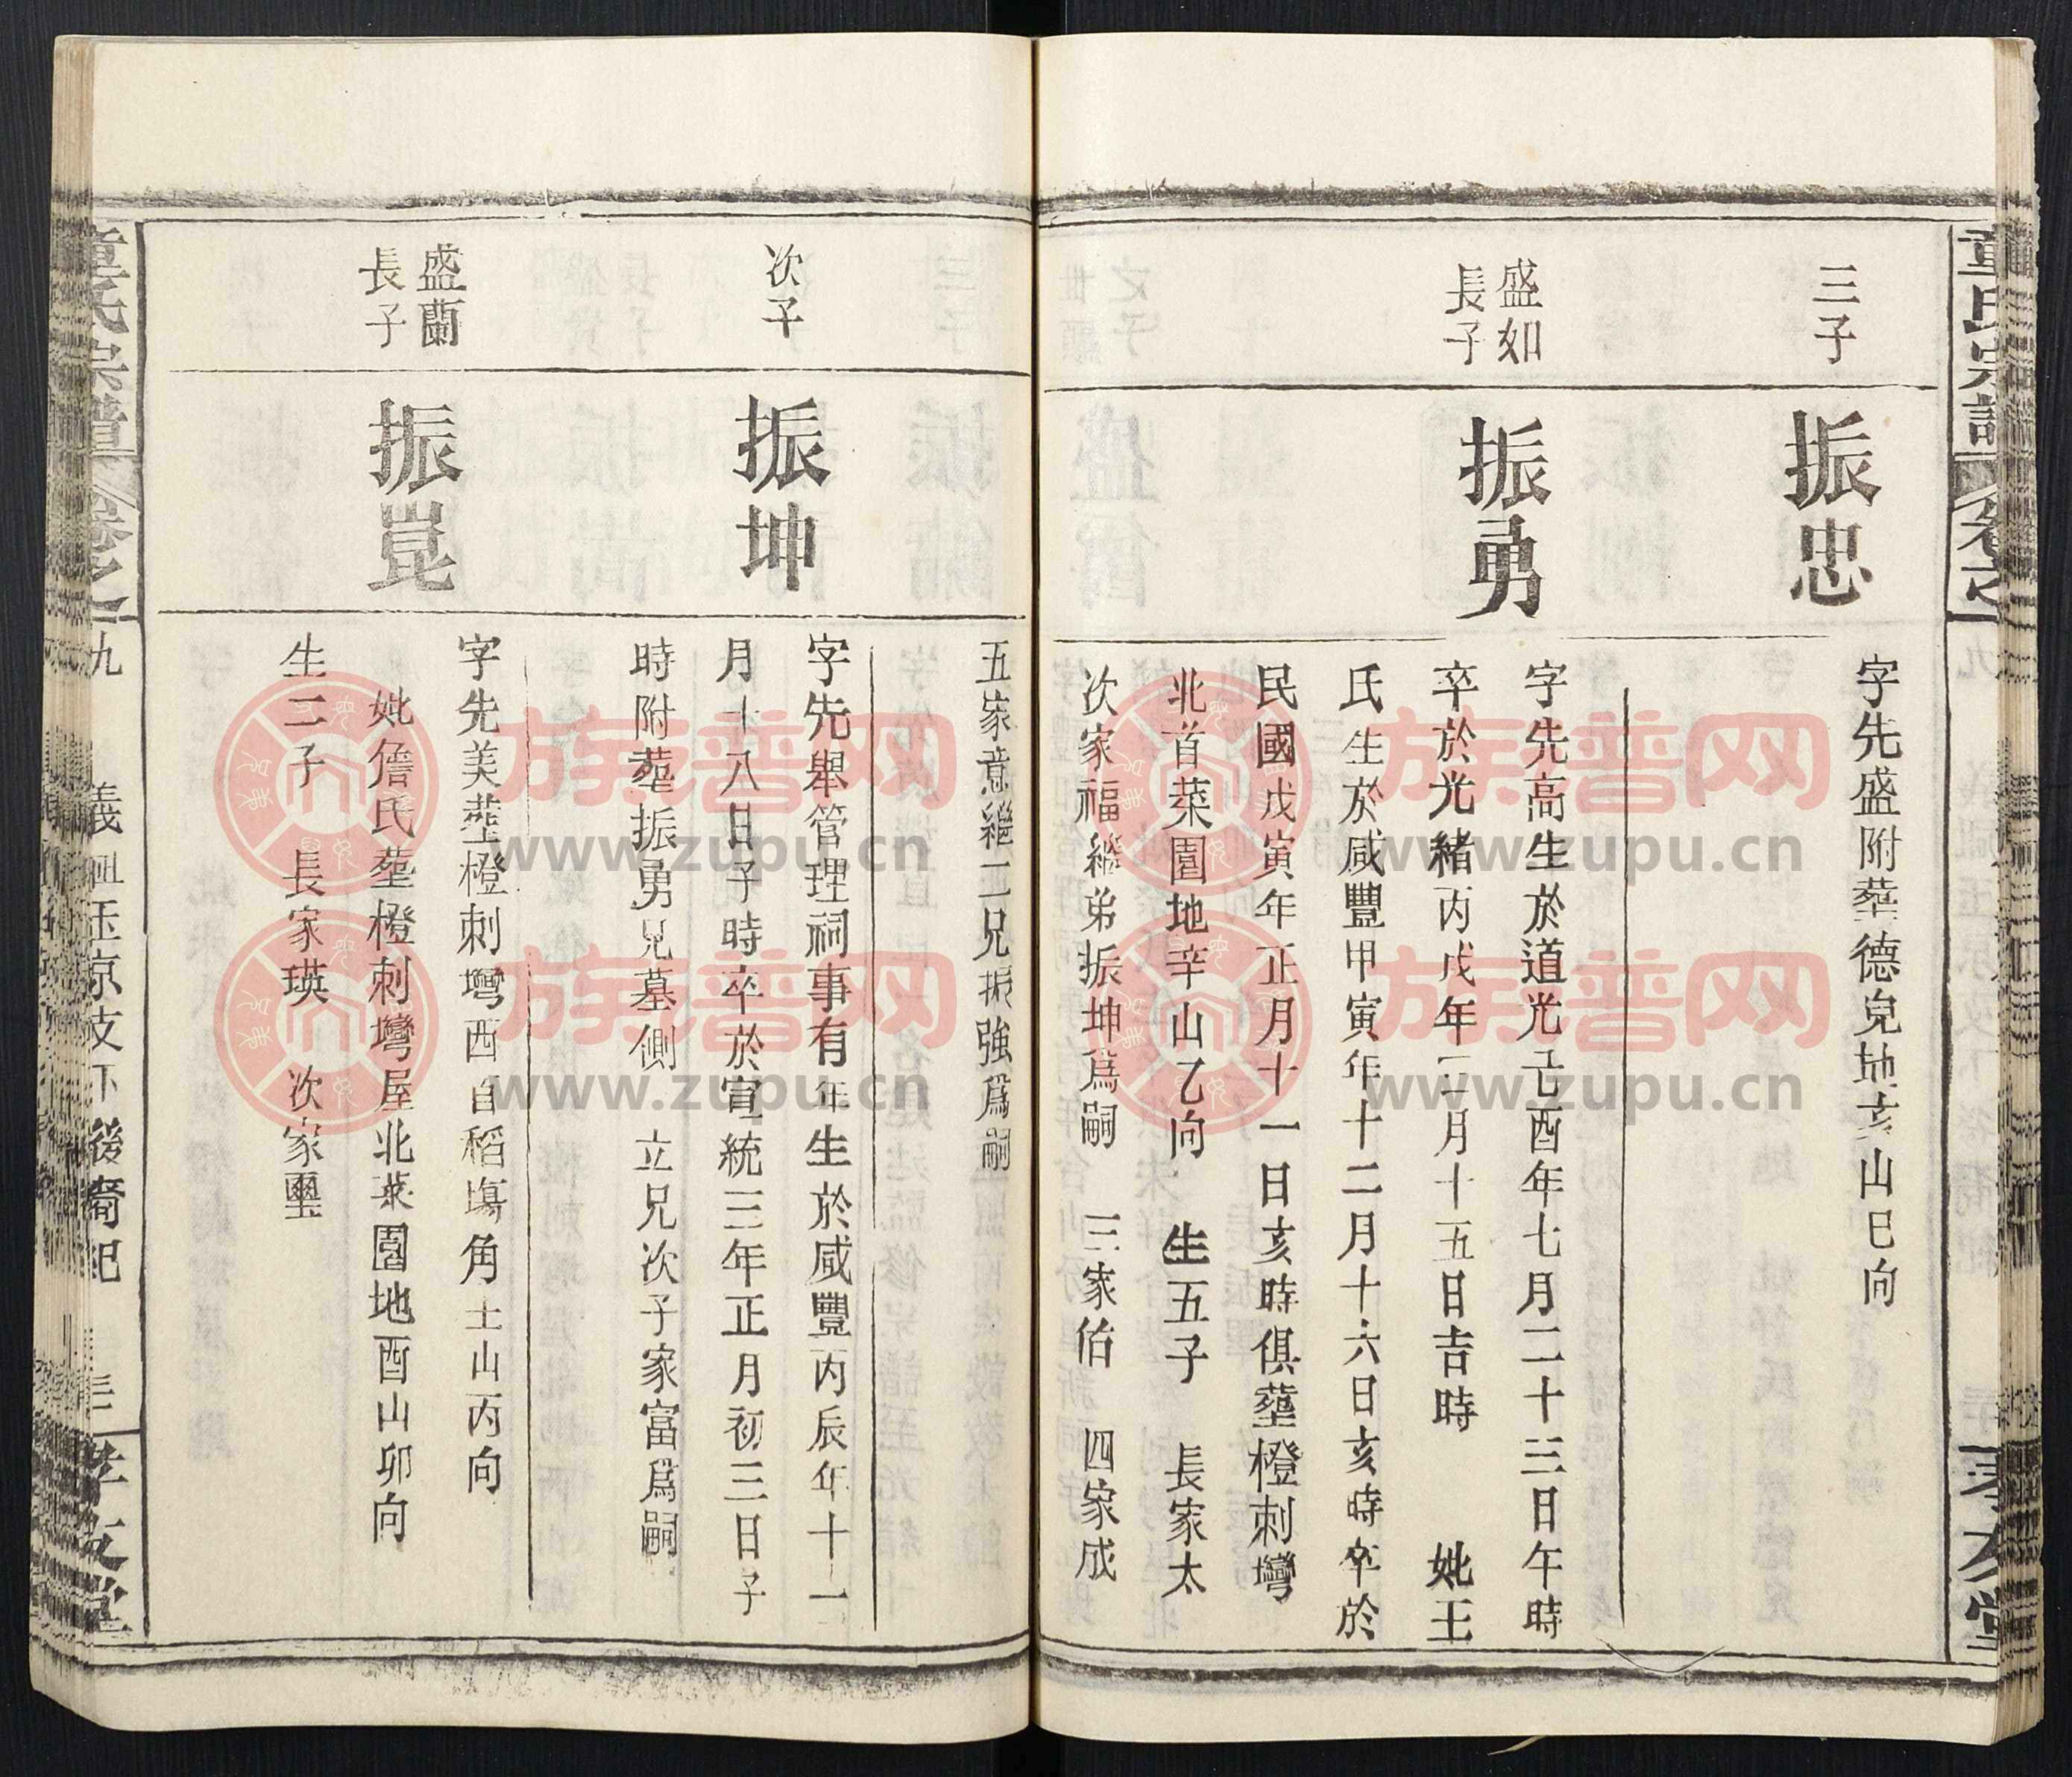 三子
振忠
字先盛附塟德兒地亥山巳向
盛如
長子
振勇
字先高生於道光己酉年七月二十三日午時
卒於光緒丙戌年二月十五日吉時 妣王
氏生於咸豐甲寅年十二月十六日亥時卒於
民國戊寅年正月十一日亥時俱塟橙刺灣
北首菜園地辛山乙向 生五子 長家太
次家福繼弟振坤爲嗣 三家佁 四家成
五家意繼二兄振強爲嗣
次子
振坤
字先舉管理祠事有年生於咸豐丙辰年十一
月十八日子時卒於宣統三年正月初三日子
時附塟振勇兄墓側 立兄次子家富爲嗣
盛蘭
長子
振崑
字先美塟橙刺灣西首稻塲角壬山丙向
妣詹氏塟橙刺灣屋北菜園地酉山卯向
生二子 長家瑛 次家璽
童氏宗譜
卷之
九
義祖玉京支下後裔紀
孝友堂
族谱网
www.zupu.cn
族谱网
www.zupu.cn
族谱网
www.zupu.cn
族谱网
www.zupu.cn